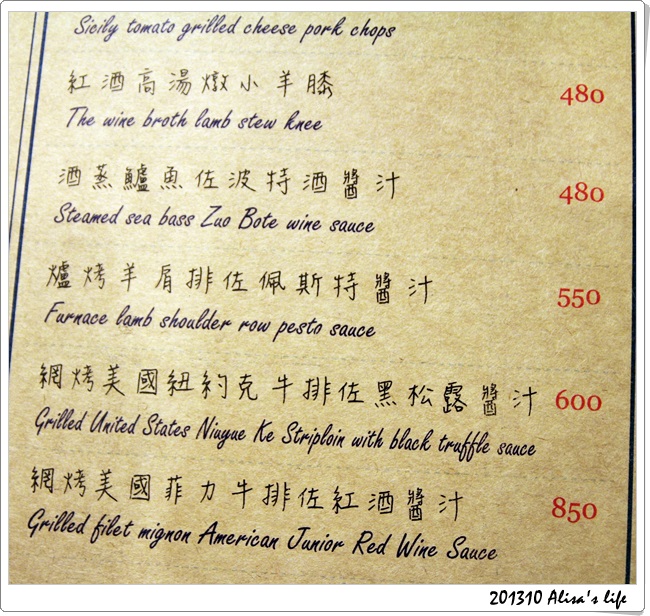 Sicily tomato grilled cheese pork chops
紅酒高湯燉小羊膝 480
The wine broth lamb stew knee
酒蒸鱸魚佐波特酒醬汁 480
Steamed sea bass Zuo Bote wine sauce
爐烤羊肩排佐佩斯特醬汁 550
Furnace lamb shoulder row pesto sauce
網烤美國紐約克牛排佐黑松露醬汁 600
Grilled United States Niuyue Ke Striploin with black truffle sauce
網烤美國菲力牛排佐紅酒醬汁 850
Grilled filet mignon American Junior Red Wine Sauce
201310 Alisa's life